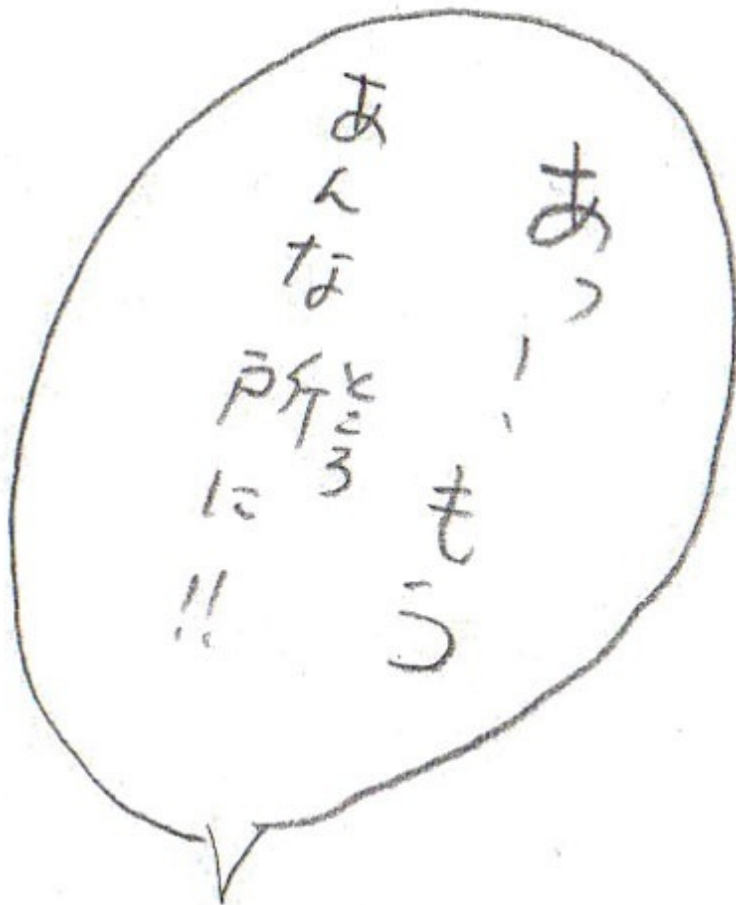 あっー、もう
あんな所に!!
ところ